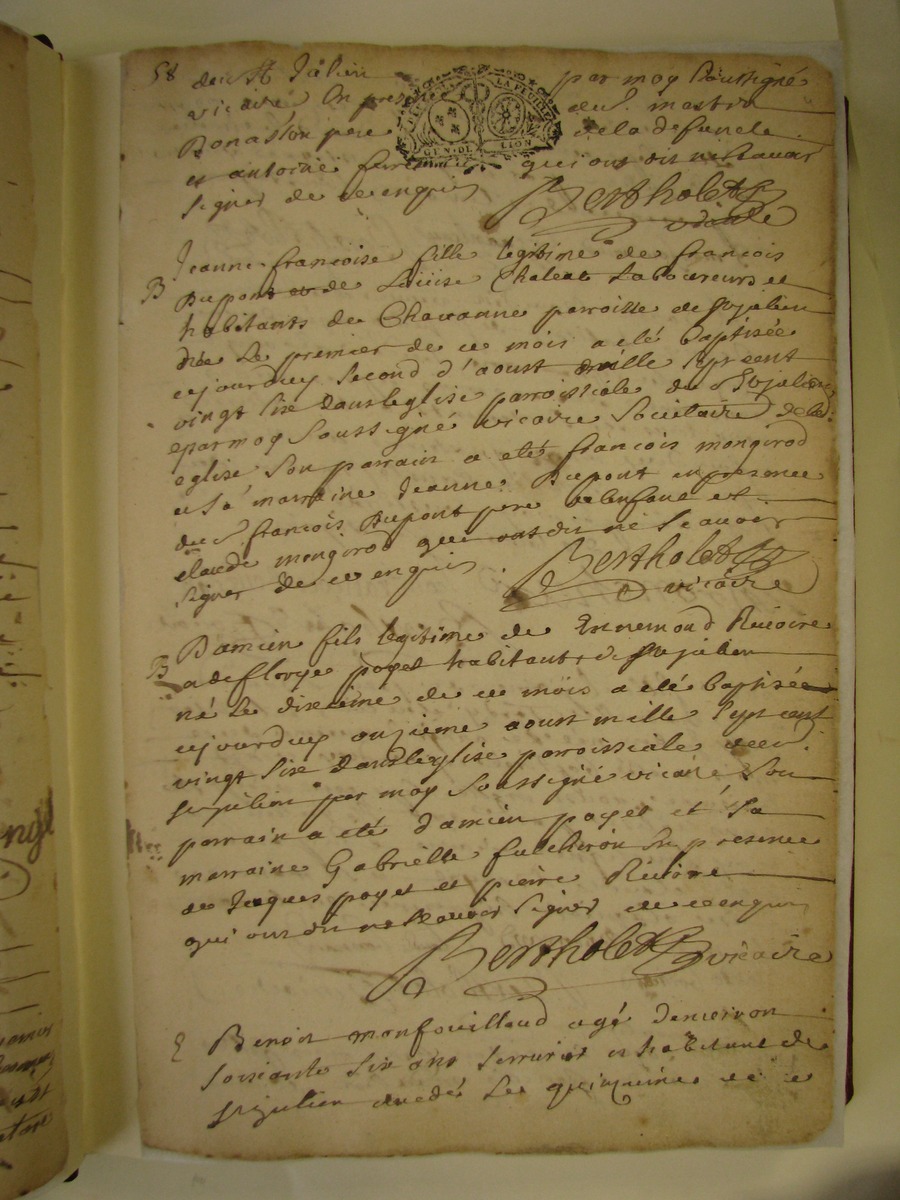 58
de St Julien par moy soussigné
vicaire en presence de Sr
Bonasson pere de la defuncte
et antoine qui ont dit ne scavoir
signer de ce enquis
GEN. DE LION
Bertholet
vicaire
Jeanne françoise fille legitime de françois
B Dupont et de Louise Chaleat Laboureurs et
habitants de Chavanne parroisse de St julien
née Le premier de ce mois a eté baptisée
cejourdhuy second d'aoust mille sept cent
vingt six dans leglise parroissiale de St julien
par moy soussigné vicaire Societaire de lad.
eglise son parrain a eté françois mongirod
et sa marraine Jeanne Dupont en presence
du Sr françois Dupont pere de lenfant et
claude mongirod qui ont dit ne scavoir
signer de ce enquis .
Bertholet
vicaire
B Damien fils legitime de Ennemond Riuoire
et de poyet habitants de St julien
né Le dixieme de ce mois a eté baptisé
cejourdhuy onzieme aoust mille sept cent
vingt six dans leglise parroissiale de
St julien par moy soussigné vicaire son
parrain a eté damien poyet et sa
marraine Gabrielle fulcheron en presence
de Jaques poyet et pierre Riuoire
qui ont dit ne scavoir signer de ce enquis
Bertholet vicaire
E Benoit monfouilloud agé denviron
soixante six ans serrurier et habitant de
St julien decedé Le quinzieme de ce